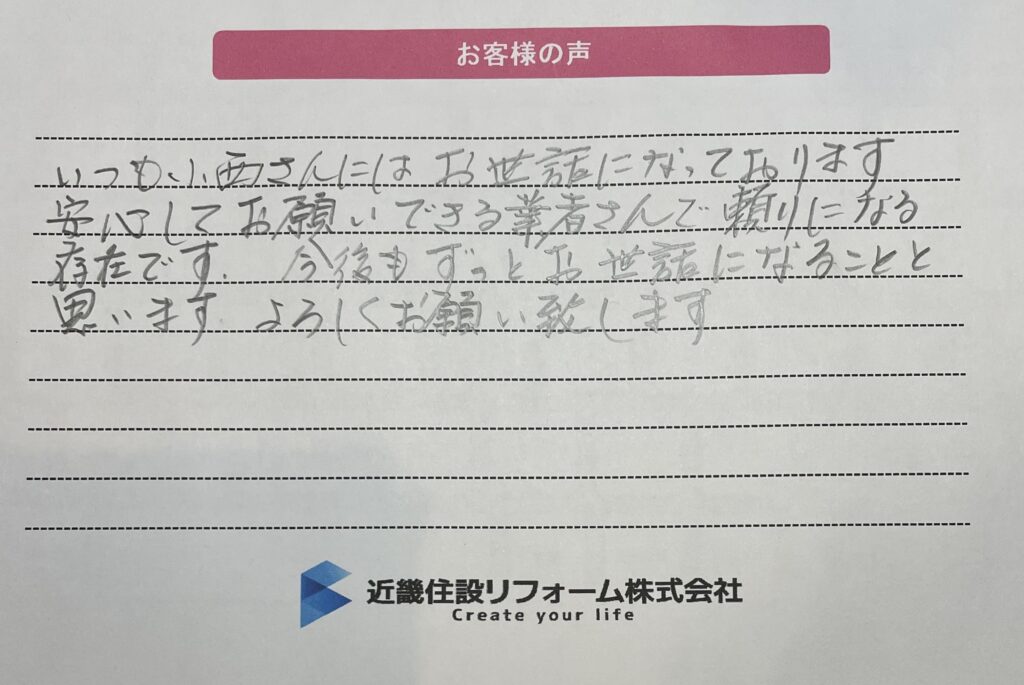 お客様の声
いつも小西さんにはお世話になっております
安心してお願いできる業者さんで頼りになる
存在です. 今後もずっとお世話になることと
思います. よろしくお願い致します
近畿住設リフォーム株式会社
Create your life